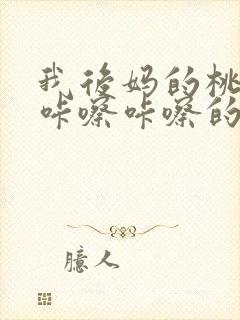 我后妈的桃
咔嚓咔嚓的
臆人